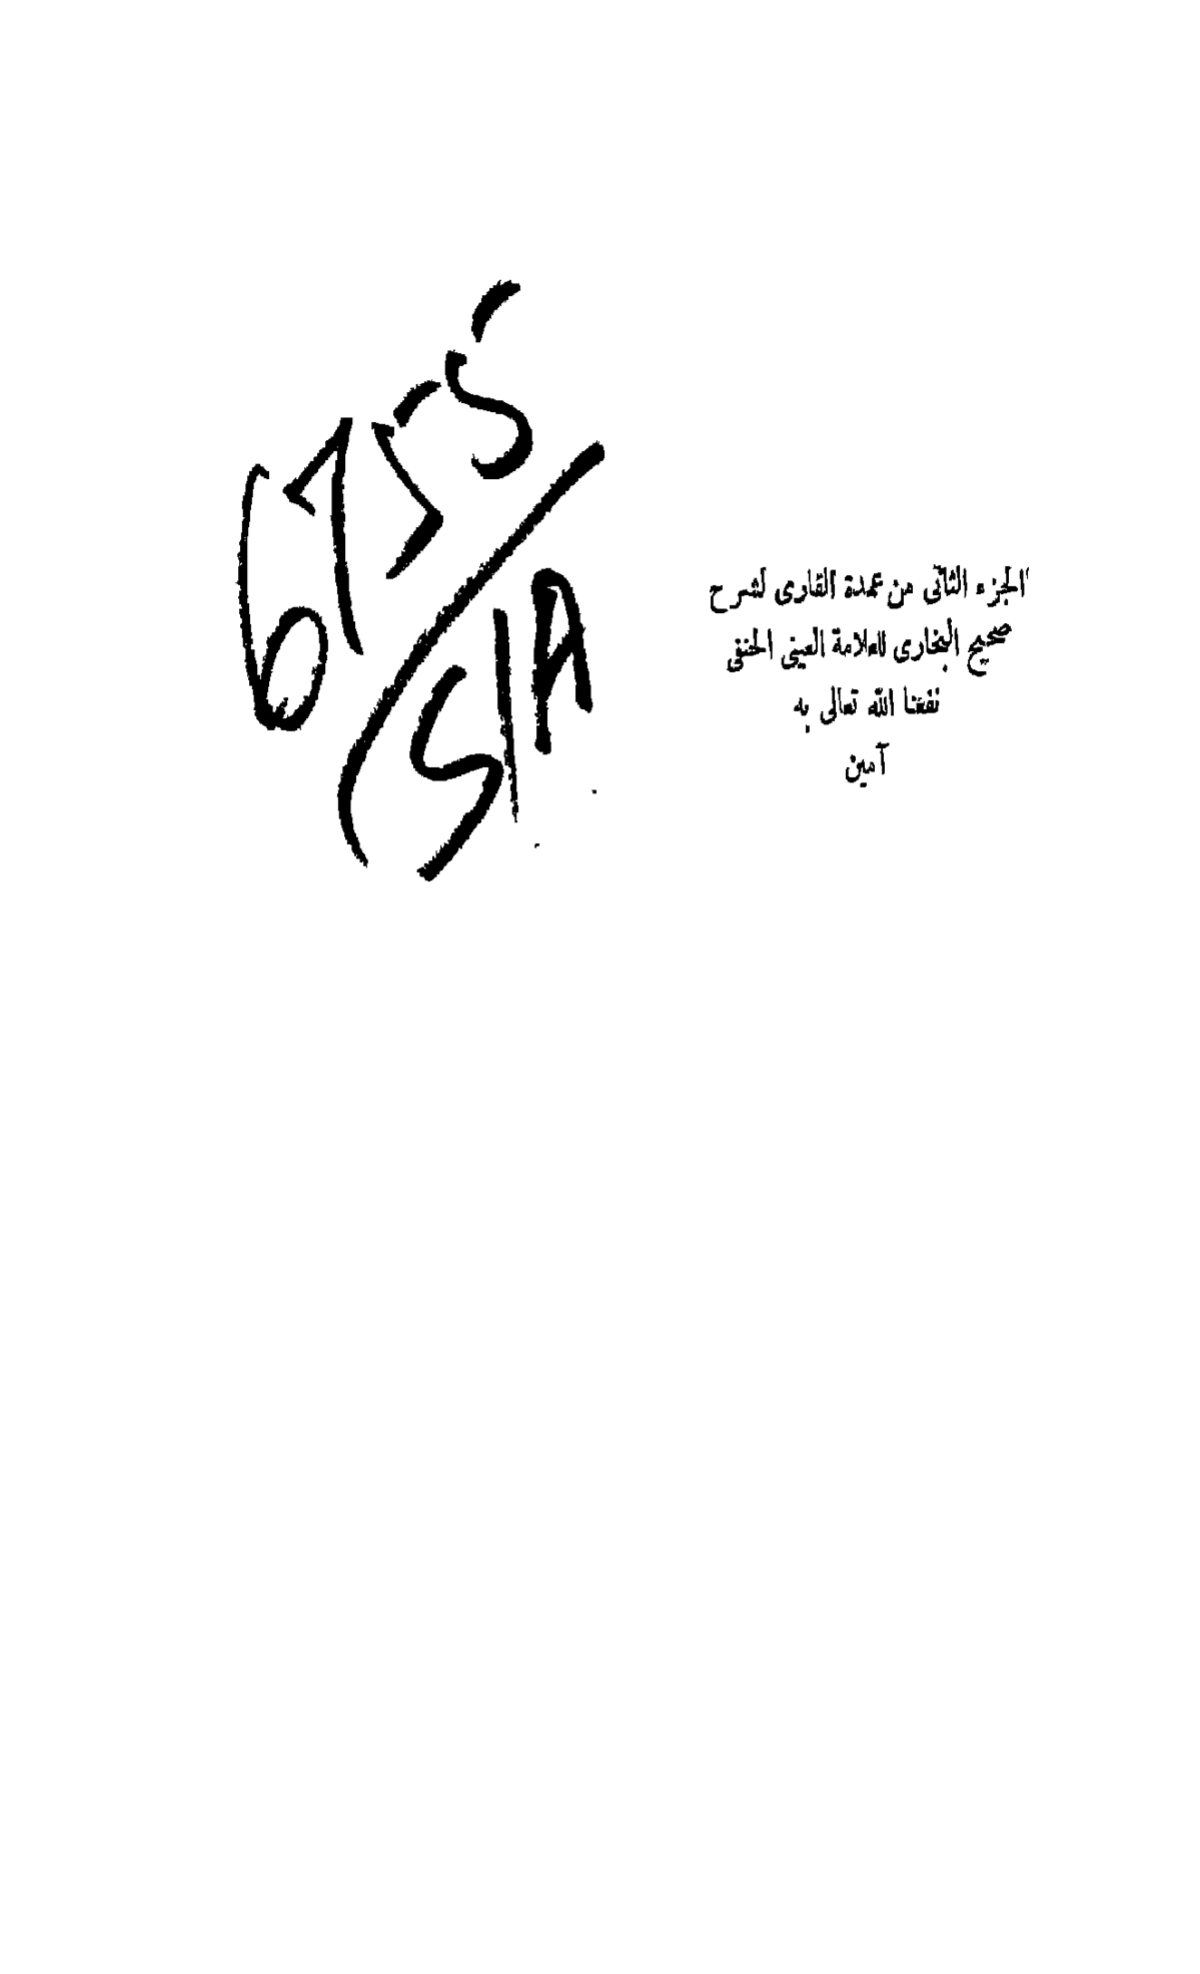 الجزء الثانى من عمدة القارى لشرح
صحيح البخارى للعلامة العينى الحنفى
نفعنا الله تعالى به
آمين
6755
/51A